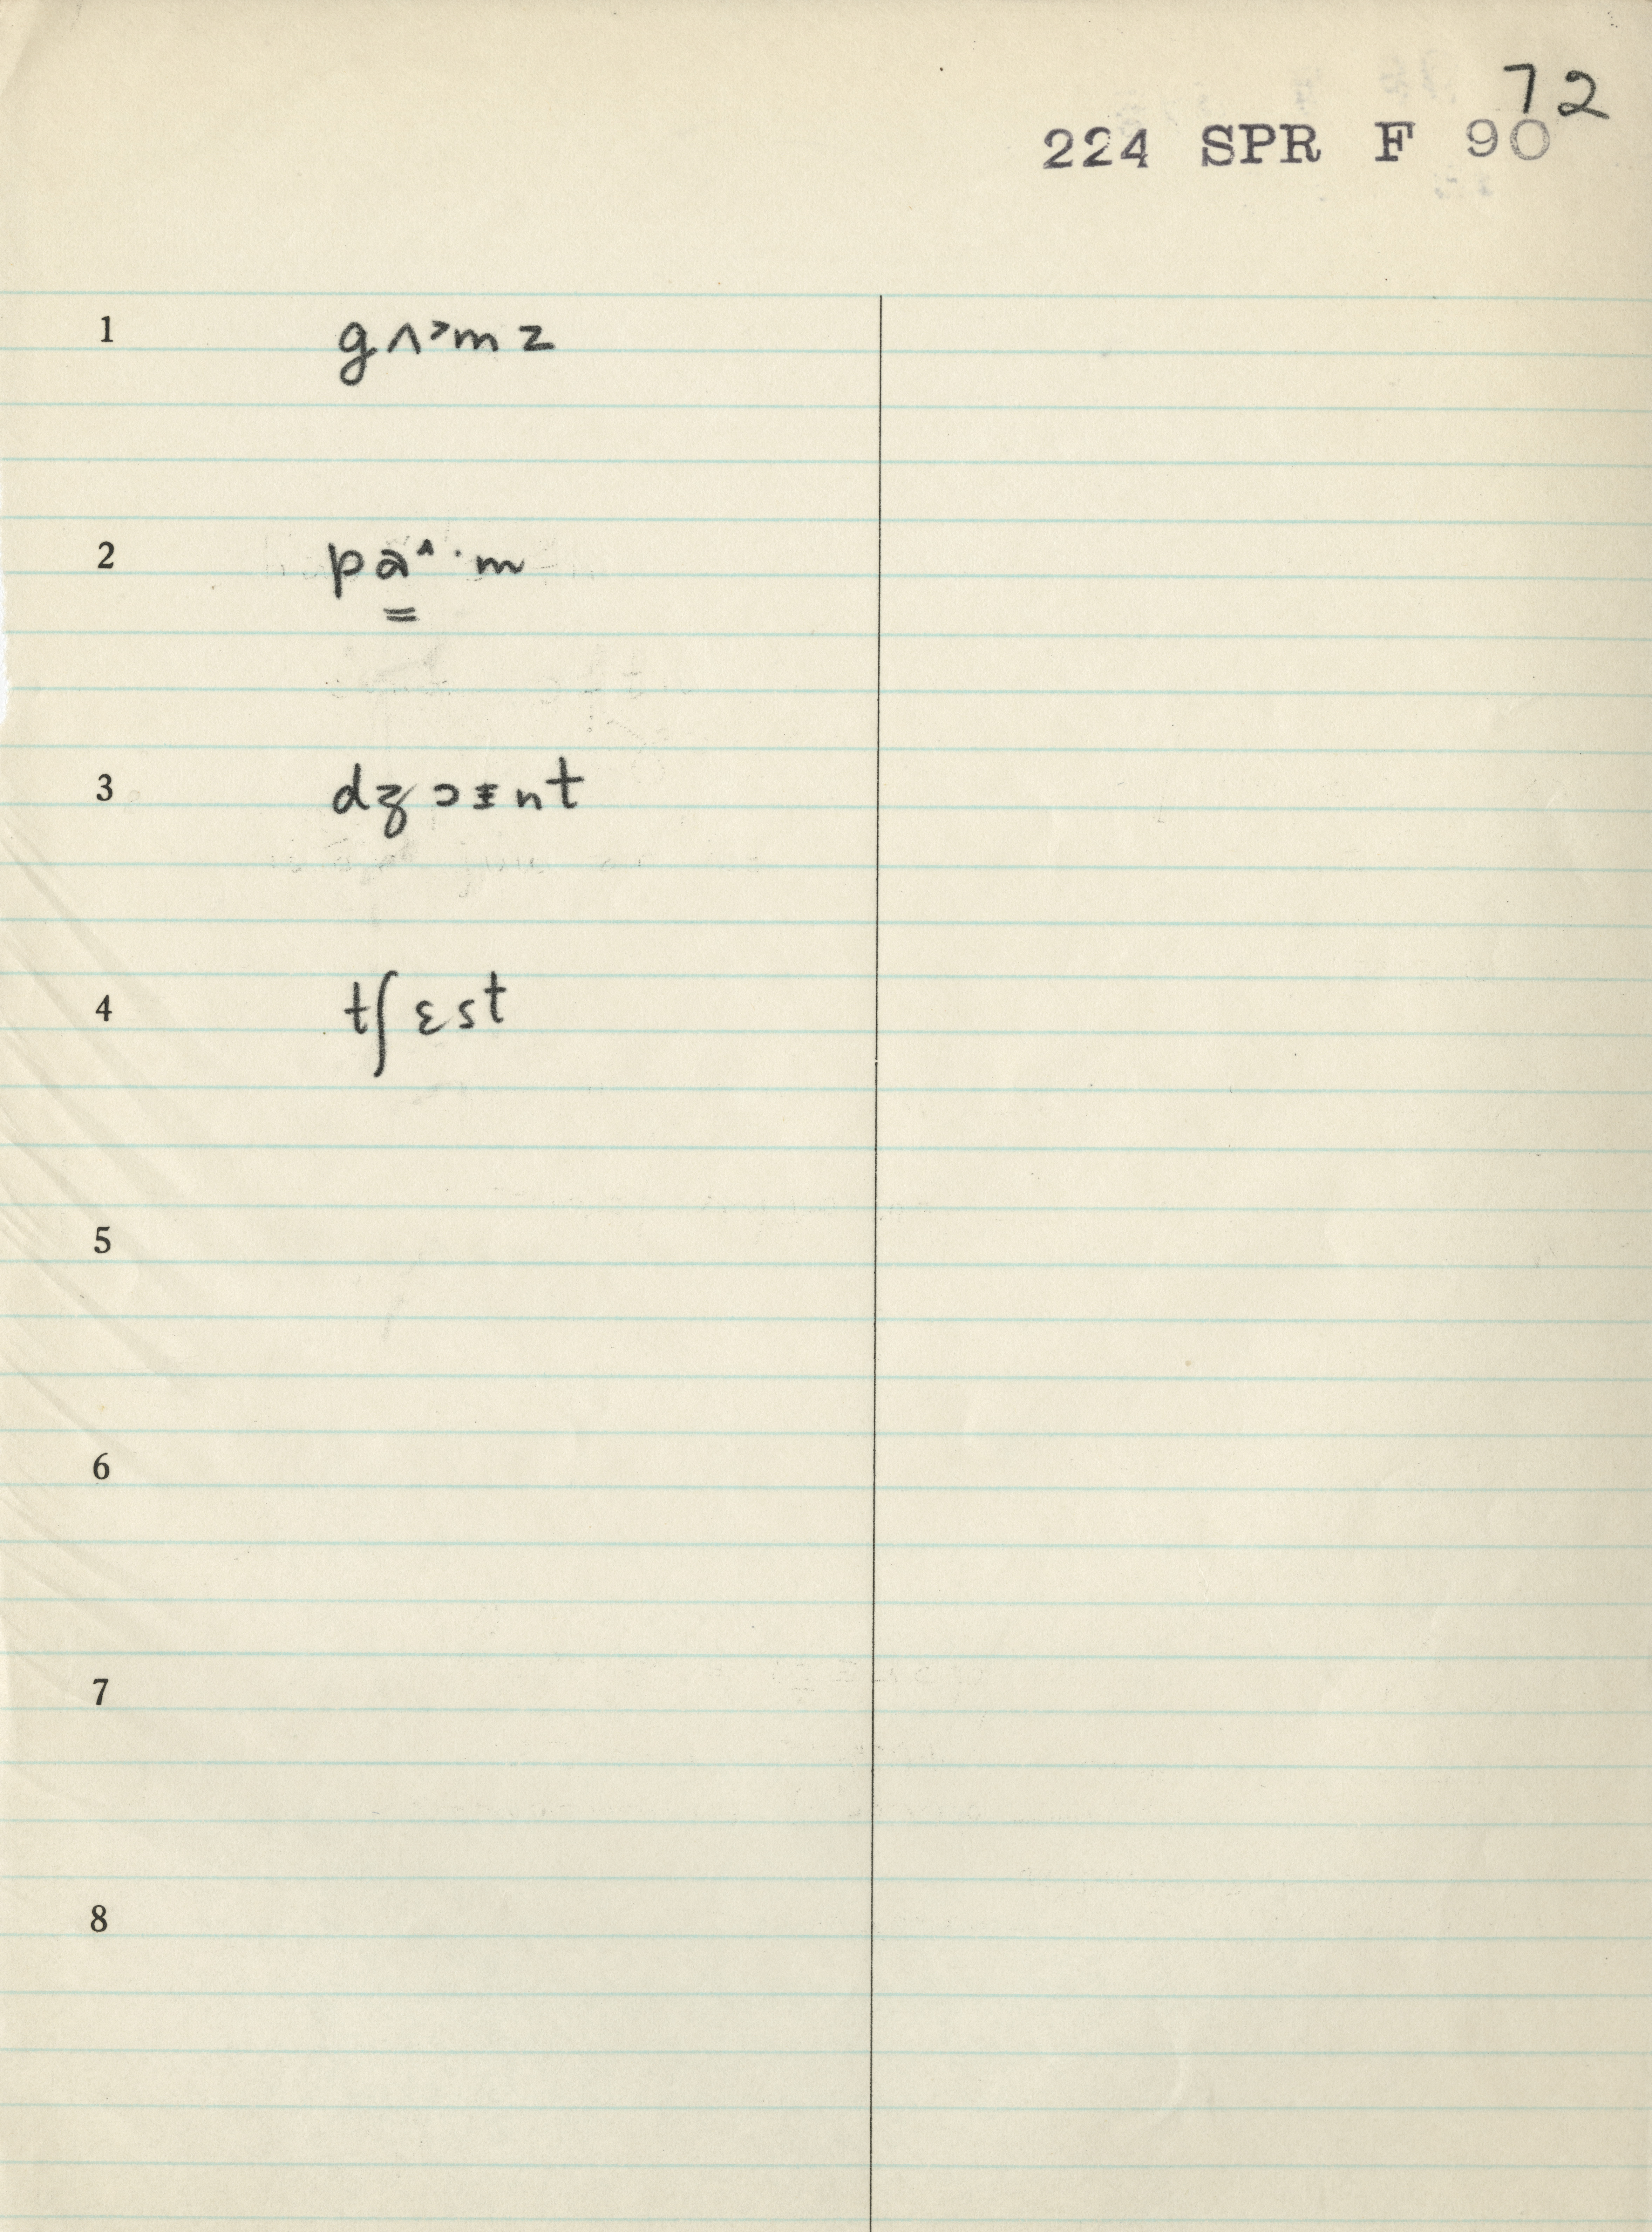 72
224 SPR F 90
1 gʌ˃mz
2 pa̳ˆ·m
3 dʒɔɪnt
4 tʃɛst
5
6
7
8